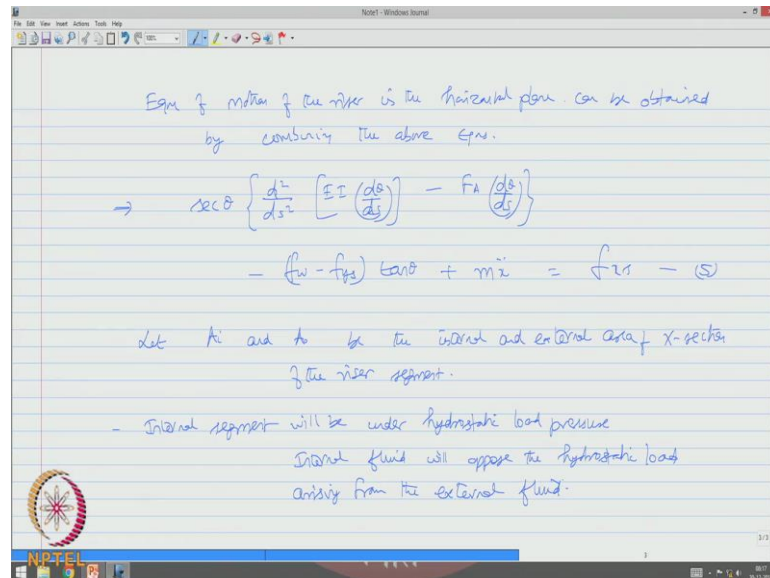 Note1 - Windows Journal
File Edit View Insert Actions Tools Help
Eqn of motion of the riser in the horizontal plane can be obtained
by combining the above Eqns.
→ sec θ { d²/ds² [EI (dθ/ds)] - FA (dθ/ds) }
- (fw - fys) tanθ + mẍ = fxs - (5)
Let Ai and Ao be the internal and external area of X-section
of the riser segment.
- Internal segment will be under hydrostatic load pressure
Internal fluid will oppose the hydrostatic load
arising from the external fluid.
NPTEL
3/3
3